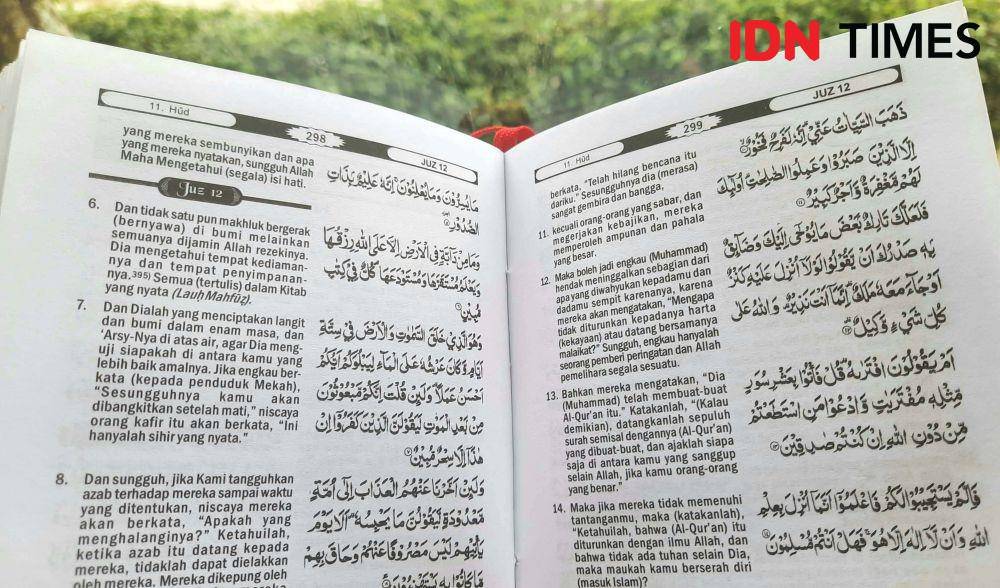 IDN TIMES
11. Hūd
298
JUZ 12
yang mereka sembunyikan dan apa
yang mereka nyatakan, sungguh Allah
Maha Mengetahui (segala) isi hati.
Juz 12
6. Dan tidak satu pun makhluk bergerak
(bernyawa) di bumi melainkan
semuanya dijamin Allah rezekinya.
Dia mengetahui tempat kediaman-
nya dan tempat penyimpanan-
nya.395) Semua (tertulis) dalam Kitab
yang nyata (Lauḥ Maḥfūẓ).
7. Dan Dialah yang menciptakan langit
dan bumi dalam enam masa, dan
'Arsy-Nya di atas air, agar Dia meng-
uji siapakah di antara kamu yang
lebih baik amalnya. Jika engkau ber-
kata (kepada penduduk Mekah),
"Sesungguhnya kamu akan
dibangkitkan setelah mati," niscaya
orang kafir itu akan berkata, "Ini
hanyalah sihir yang nyata."
8. Dan sungguh, jika Kami tangguhkan
azab terhadap mereka sampai waktu
yang ditentukan, niscaya mereka
akan berkata, "Apakah yang
menghalanginya?" Ketahuilah,
ketika azab itu datang kepada
mereka, tidaklah dapat dielakkan
oleh mereka. Mereka dikepung oleh
مَا يُسِرُّوْنَ وَمَا يُعْلِنُوْنَۚ اِنَّهٗ عَلِيْمٌۢ بِذَاتِ
الصُّدُوْرِ
وَمَا مِنْ دَاۤبَّةٍ فِى الْاَرْضِ اِلَّا عَلَى اللّٰهِ رِزْقُهَا
وَيَعْلَمُ مُسْتَقَرَّهَا وَمُسْتَوْدَعَهَاۗ كُلٌّ فِيْ كِتٰبٍ
مُّبِيْنٍ
وَهُوَ الَّذِيْ خَلَقَ السَّمٰوٰتِ وَالْاَرْضَ فِيْ سِتَّةِ
اَيَّامٍ وَّكَانَ عَرْشُهٗ عَلَى الْمَاۤءِ لِيَبْلُوَكُمْ اَيُّكُمْ
اَحْسَنُ عَمَلًاۗ وَلَىِٕنْ قُلْتَ اِنَّكُمْ مَّبْعُوْثُوْنَ
مِنْۢ بَعْدِ الْمَوْتِ لَيَقُوْلَنَّ الَّذِيْنَ كَفَرُوْٓا اِنْ
هٰذَآ اِلَّا سِحْرٌ مُّبِيْنٌ
وَلَىِٕنْ اَخَّرْنَا عَنْهُمُ الْعَذَابَ اِلٰٓى اُمَّةٍ
مَّعْدُوْدَةٍ لَّيَقُوْلُنَّ مَا يَحْبِسُهٗۗ اَلَا يَوْمَ
يَأْتِيْهِمْ لَيْسَ مَصْرُوْفًا عَنْهُمْ وَحَاقَ بِهِمْ
مَّا كَانُوْا بِهٖ يَسْتَهْزِءُوْنَ
11. Hūd
299
JUZ 12
berkata, "Telah hilang bencana itu
dariku." Sesungguhnya dia (merasa)
sangat gembira dan bangga,
11. kecuali orang-orang yang sabar, dan
megerjakan kebajikan, mereka
memperoleh ampunan dan pahala
yang besar.
12. Maka boleh jadi engkau (Muhammad)
hendak meninggalkan sebagian dari
apa yang diwahyukan kepadamu dan
dadamu sempit karenanya, karena
mereka akan mengatakan, "Mengapa
tidak diturunkan kepadanya harta
(kekayaan) atau datang bersamanya
malaikat?" Sungguh, engkau hanyalah
seorang pemberi peringatan dan Allah
pemelihara segala sesuatu.
13. Bahkan mereka mengatakan, "Dia
(Muhammad) telah membuat-buat
Al-Qur'an itu." Katakanlah, "(Kalau
demikian), datangkanlah sepuluh
surah semisal dengannya (Al-Qur'an)
yang dibuat-buat, dan ajaklah siapa
saja di antara kamu yang sanggup
selain Allah, jika kamu orang-orang
yang benar."
14. Maka jika mereka tidak memenuhi
tantanganmu, maka (katakanlah),
"Ketahuilah, bahwa (Al-Qur'an) itu
diturunkan dengan ilmu Allah, dan
bahwa tidak ada tuhan selain Dia,
maka maukah kamu berserah diri
(masuk Islam)?
ذَهَبَ السَّيِّاٰتُ عَنِّيْۗ اِنَّهٗ لَفَرِحٌ فَخُوْرٌ
اِلَّا الَّذِيْنَ صَبَرُوْا وَعَمِلُوا الصّٰلِحٰتِۗ اُولٰۤىِٕكَ
لَهُمْ مَّغْفِرَةٌ وَّاَجْرٌ كَبِيْرٌ
فَلَعَلَّكَ تَارِكٌۢ بَعْضَ مَا يُوْحٰٓى اِلَيْكَ وَضَاۤىِٕقٌۢ
بِهٖ صَدْرُكَ اَنْ يَّقُوْلُوْا لَوْلَآ اُنْزِلَ عَلَيْهِ كَنْزٌ
اَوْ جَاۤءَ مَعَهٗ مَلَكٌۗ اِنَّمَآ اَنْتَ نَذِيْرٌۗ وَاللّٰهُ عَلٰى
كُلِّ شَيْءٍ وَّكِيْلٌ
اَمْ يَقُوْلُوْنَ افْتَرٰىهُۗ قُلْ فَأْتُوْا بِعَشْرِ سُوَرٍ
مِّثْلِهٖ مُفْتَرَيٰتٍ وَّادْعُوْا مَنِ اسْتَطَعْتُمْ
مِّنْ دُوْنِ اللّٰهِ اِنْ كُنْتُمْ صٰدِقِيْنَ
فَاِلَّمْ يَسْتَجِيْبُوْا لَكُمْ فَاعْلَمُوْٓا اَنَّمَآ اُنْزِلَ بِعِلْمِ
اللّٰهِ وَاَنْ لَّآ اِلٰهَ اِلَّا هُوَۚ فَهَلْ اَنْتُمْ مُّسْلِمُوْنَ